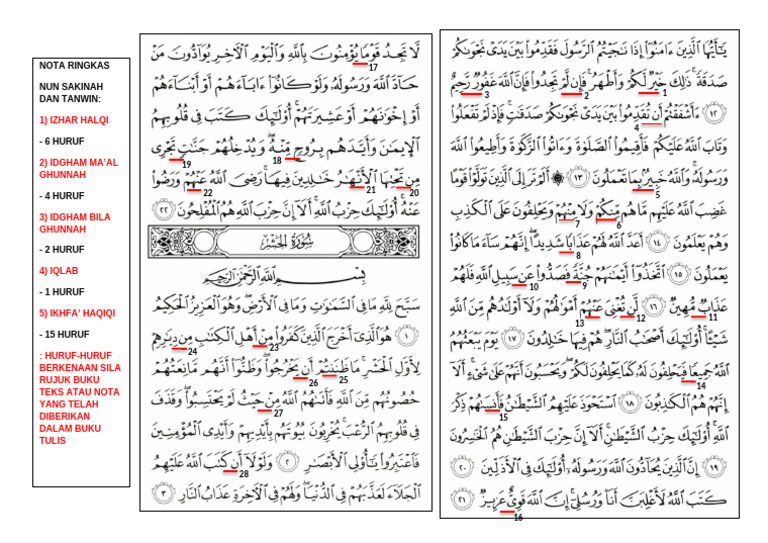 NOTA RINGKAS
NUN SAKINAH
DAN TANWIN:
1) IZHAR HALQI
- 6 HURUF
2) IDGHAM MA’AL
GHUNNAH
- 4 HURUF
3) IDGHAM BILA
GHUNNAH
- 2 HURUF
4) IQLAB
- 1 HURUF
5) IKHFA’ HAQIQI
- 15 HURUF
: HURUF-HURUF
BERKENAAN SILA
RUJUK BUKU
TEKS ATAU NOTA
YANG TELAH
DIBERIKAN
DALAM BUKU
TULIS
يَٰٓأَيُّهَا ٱلَّذِينَ ءَامَنُوٓا۟ إِذَا نَٰجَيْتُمُ ٱلرَّسُولَ فَقَدِّمُوا۟ بَيْنَ يَدَىْ نَجْوَىٰكُمْ
صَدَقَةً ۚ ذَٰلِكَ خَيْرٌ لَّكُمْ وَأَطْهَرُ ۚ فَإِن لَّمْ تَجِدُوا۟ فَإِنَّ ٱللَّهَ غَفُورٌ رَّحِيمٌ
1 2 3
١٢ ءَأَشْفَقْتُمْ أَن تُقَدِّمُوا۟ بَيْنَ يَدَىْ نَجْوَىٰكُمْ صَدَقَٰتٍ ۚ فَإِذْ لَمْ تَفْعَلُوا۟
4
وَتَابَ ٱللَّهُ عَلَيْكُمْ فَأَقِيمُوا۟ ٱلصَّلَوٰةَ وَءَاتُوا۟ ٱلزَّكَوٰةَ وَأَطِيعُوا۟ ٱللَّهَ
وَرَسُولَهُۥ ۚ وَٱللَّهُ خَبِيرٌۢ بِمَا تَعْمَلُونَ ١٣ ۞ أَلَمْ تَرَ إِلَى ٱلَّذِينَ تَوَلَّوْا۟ قَوْمًا
5
غَضِبَ ٱللَّهُ عَلَيْهِم مَّا هُم مِّنكُمْ وَلَا مِنْهُمْ وَيَحْلِفُونَ عَلَى ٱلْكَذِبِ
6 7
وَهُمْ يَعْلَمُونَ ١٤ أَعَدَّ ٱللَّهُ لَهُمْ عَذَابًا شَدِيدًا ۖ إِنَّهُمْ سَآءَ مَا كَانُوا۟
8
يَعْمَلُونَ ١٥ ٱتَّخَذُوٓا۟ أَيْمَٰنَهُمْ جُنَّةً فَصَدُّوا۟ عَن سَبِيلِ ٱللَّهِ فَلَهُمْ
9 10
عَذَابٌ مُّهِينٌ ١٦ لَّن تُغْنِىَ عَنْهُمْ أَمْوَٰلُهُمْ وَلَآ أَوْلَٰدُهُم مِّنَ ٱللَّهِ
11 12 13
شَيْـًٔا ۚ أُو۟لَٰٓئِكَ أَصْحَٰبُ ٱلنَّارِ ۖ هُمْ فِيهَا خَٰلِدُونَ ١٧ يَوْمَ يَبْعَثُهُمُ
ٱللَّهُ جَمِيعًا فَيَحْلِفُونَ لَهُۥ كَمَا يَحْلِفُونَ لَكُمْ ۖ وَيَحْسَبُونَ أَنَّهُمْ عَلَىٰ شَىْءٍ ۚ أَلَآ
14
إِنَّهُمْ هُمُ ٱلْكَٰذِبُونَ ١٨ ٱسْتَحْوَذَ عَلَيْهِمُ ٱلشَّيْطَٰنُ فَأَنسَىٰهُمْ ذِكْرَ
15
ٱللَّهِ ۚ أُو۟لَٰٓئِكَ حِزْبُ ٱلشَّيْطَٰنِ ۚ أَلَآ إِنَّ حِزْبَ ٱلشَّيْطَٰنِ هُمُ ٱلْخَٰسِرُونَ
١٩ إِنَّ ٱلَّذِينَ يُحَآدُّونَ ٱللَّهَ وَرَسُولَهُۥٓ أُو۟لَٰٓئِكَ فِى ٱلْأَذَلِّينَ ٢٠
كَتَبَ ٱللَّهُ لَأَغْلِبَنَّ أَنَا۠ وَرُسُلِىٓ ۚ إِنَّ ٱللَّهَ قَوِىٌّ عَزِيزٌ ٢١
16
لَّا تَجِدُ قَوْمًا يُؤْمِنُونَ بِٱللَّهِ وَٱلْيَوْمِ ٱلْءَاخِرِ يُوَآدُّونَ مَنْ
17
حَآدَّ ٱللَّهَ وَرَسُولَهُۥ وَلَوْ كَانُوٓا۟ ءَابَآءَهُمْ أَوْ أَبْنَآءَهُمْ
أَوْ إِخْوَٰنَهُمْ أَوْ عَشِيرَتَهُمْ ۚ أُو۟لَٰٓئِكَ كَتَبَ فِى قُلُوبِهِمُ
ٱلْإِيمَٰنَ وَأَيَّدَهُم بِرُوحٍ مِّنْهُ ۖ وَيُدْخِلُهُمْ جَنَّٰتٍ تَجْرِى
18 19
مِن تَحْتِهَا ٱلْأَنْهَٰرُ خَٰلِدِينَ فِيهَا ۚ رَضِىَ ٱللَّهُ عَنْهُمْ وَرَضُوا۟
20 21 22
عَنْهُ ۚ أُو۟لَٰٓئِكَ حِزْبُ ٱللَّهِ ۚ أَلَآ إِنَّ حِزْبَ ٱللَّهِ هُمُ ٱلْمُفْلِحُونَ ٢٢
سُورَةُ الحَشْرِ
بِسْمِ ٱللَّهِ ٱلرَّحْمَٰنِ ٱلرَّحِيمِ
سَبَّحَ لِلَّهِ مَا فِى ٱلسَّمَٰوَٰتِ وَمَا فِى ٱلْأَرْضِ ۖ وَهُوَ ٱلْعَزِيزُ ٱلْحَكِيمُ
١ هُوَ ٱلَّذِىٓ أَخْرَجَ ٱلَّذِينَ كَفَرُوا۟ مِنْ أَهْلِ ٱلْكِتَٰبِ مِن دِيَٰرِهِمْ
23 24
لِأَوَّلِ ٱلْحَشْرِ ۚ مَا ظَنَنتُمْ أَن يَخْرُجُوا۟ ۖ وَظَنُّوٓا۟ أَنَّهُم مَّانِعَتُهُمْ
25 26
حُصُونُهُم مِّنَ ٱللَّهِ فَأَتَىٰهُمُ ٱللَّهُ مِنْ حَيْثُ لَمْ يَحْتَسِبُوا۟ ۖ وَقَذَفَ
27
فِى قُلُوبِهِمُ ٱلرُّعْبَ ۚ يُخْرِبُونَ بُيُوتَهُم بِأَيْدِيهِمْ وَأَيْدِى ٱلْمُؤْمِنِينَ
فَٱعْتَبِرُوا۟ يَٰٓأُو۟لِى ٱلْأَبْصَٰرِ ٢ وَلَوْلَآ أَن كَتَبَ ٱللَّهُ عَلَيْهِمُ
28
ٱلْجَلَآءَ لَعَذَّبَهُمْ فِى ٱلدُّنْيَا ۖ وَلَهُمْ فِى ٱلْءَاخِرَةِ عَذَابُ ٱلنَّارِ ٣